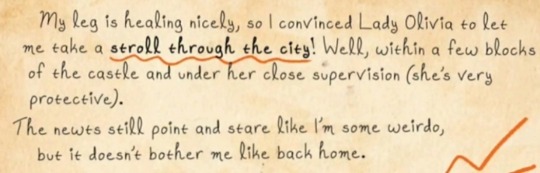 My leg is healing nicely, so I convinced Lady Olivia to let
me take a stroll through the city! Well, within a few blocks
of the castle and under her close supervision (she's very
protective).
The newts still point and stare like I'm some weirdo,
but it doesn't bother me like back home.